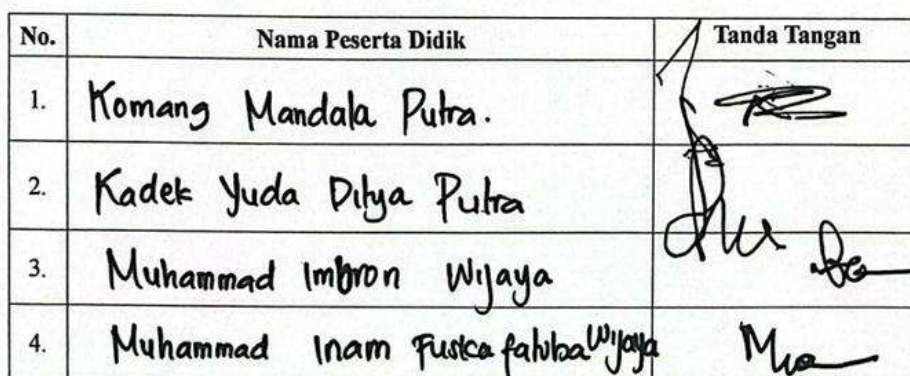 No. Nama Peserta Didik Tanda Tangan
1. Komang Mandala Putra.
2. Kadek Yuda Ditya Putra
3. Muhammad Imbron Wijaya
4. Muhammad Inam Wijaya